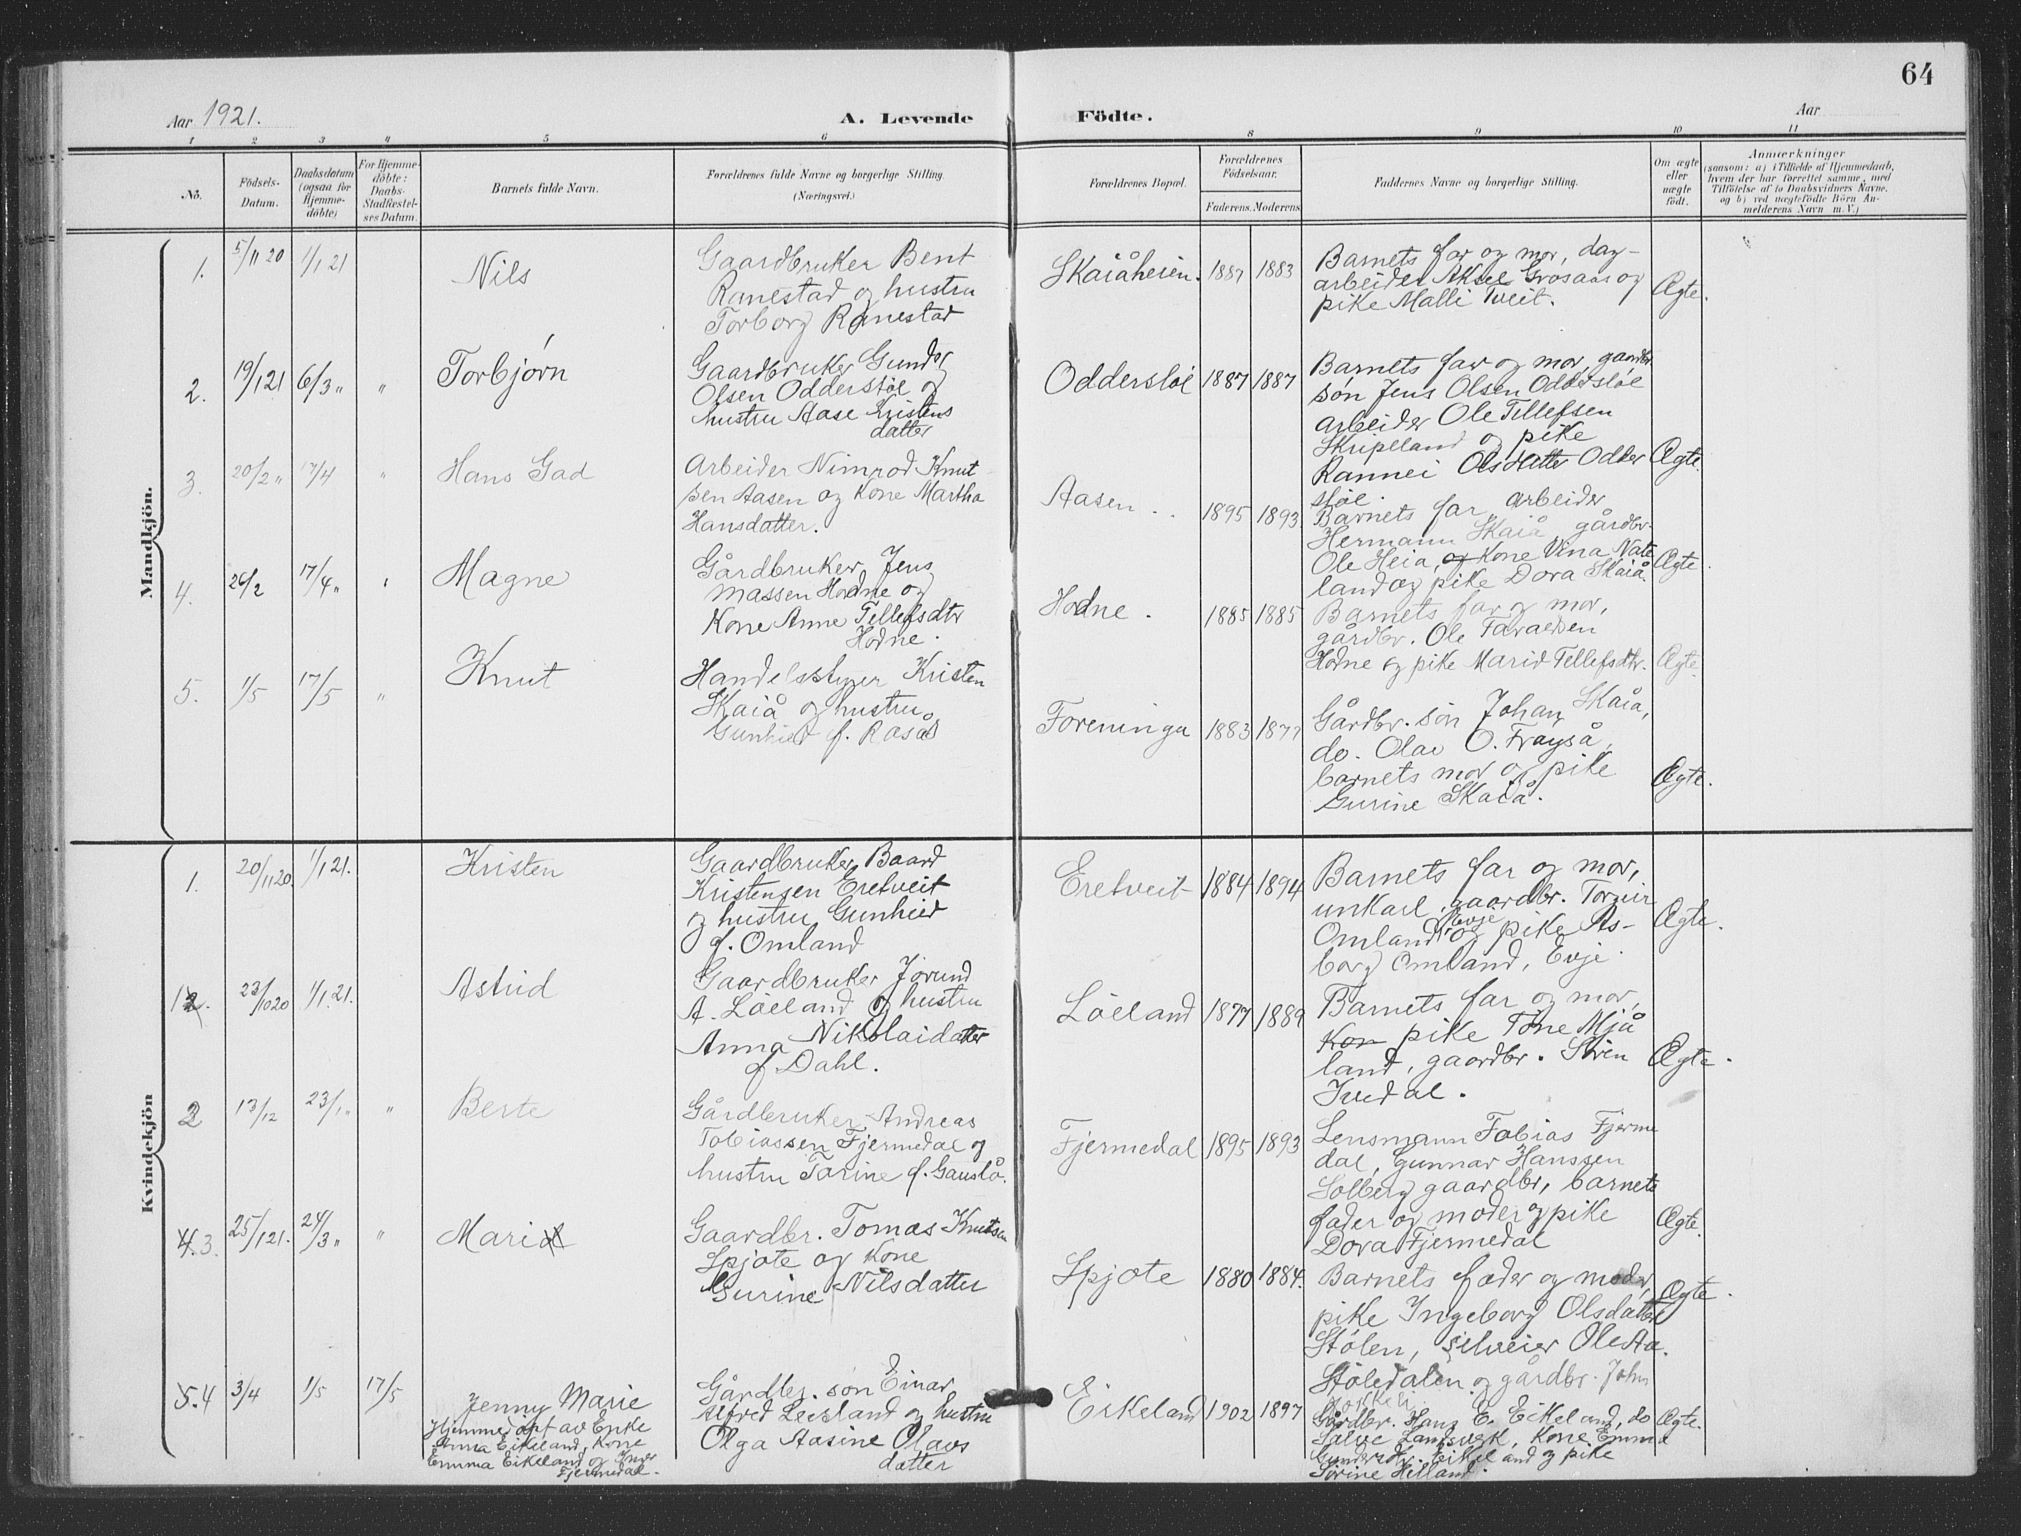 64
Aar 1921.
A. Levende Födte.
Aar
1 2 3 " 5 6 8 9 10 11
No.
Födsels-Datum.
Daabsdatum (ogsaa for Hjemme-döbte)
For Hjemme-döbte: Daabs-Stadfæstel-ses Datum.
Barnets fulde Navn.
Forældrenes fulde Navne og borgerlige Stilling.
(Næringsvei.)
Forældrenes Bopæl.
Forældrenes Födselsaar.
Faderens. Moderens.
Faddernes Navne og borgerlige Stilling.
Om ægte eller uægte födt.
Anmærkninger
(saasom: a) i Tilfælde af Hjemmedaab,
hvem der har forrettet samme, med
Tilföielse af to Daabsvidners Navne,
og b) ved uægtefödte Börn An-
melderens Navn m. V.)
Mandkjön.
1. 5/11 20 1/1 21 Nils
Gaardbruker Bent
Ranestad og hustru
Torborg Ranestad
Skaiåheien. 1887 1883
Barnets far og mor, dag-
arbeider Aksel Grosaas og
pike Malli Tveit.
Ægte.
2. 19/1 21 6/3 " " Torbjørn
Gaardbruker Gunder
Olsen Odderstøl og
hustru Aase Kristens
datter
Odderstøl 1887 1887
Barnets far og mor, gaardbr
søn Jens Olsen Odderstøl
arbeider Ole Tellefsen
Skripeland og pike
Rannei Olsdatter Odder
støl.
Ægte.
3. 20/2 " 17/4 " Hans Gad
Arbeider Nimrod Knut
sen Aasen og Kone Martha
Hansdatter.
Aasen . . 1895 1893
Barnets far, arbeider
Hermann Skaiå, gårdbr.
Ole Heia, og Kone Vena Nate
land og pike Dora Skaiå.
Ægte.
4. 26/2 17/4 " " Magne
Gårdbruker Jens
Massen Hodne og
Kone Anne Tellefsdtr
Hodne.
Hodne. 1885 1885
Barnets far og mor,
gårdbr. Ole Taraldsen
Hodne og pike Marid Tellefsdtr.
Ægte.
5. 1/5 17/5 " Knut
Handelsstyrer Kristen
Skaiå og hustru
Gunhild f. Råsås
Foreninga 1883 1877
Gårdbr. søn Johan Skaiå,
do. Olav O. Frøyså,
barnets mor og pike
Gurine Skaiå.
Ægte.
Kvindekjön
1. 20/11 20. 1/1 21. Kristen
Gaardbruker Baard
Kristensen Eretveit
og hustru Gunhild
f. Omland
Eretveit 1884 1894
Barnets far og mor,
unkarl, gaardbr. Torgeir
Omland, Evje og pike As-
borg Omland, Evje.
Ægte.
12. 23/10 20 1/1 21. Astrid
Gaardbruker Jørund
A. Løland og hustru
Anna Nikolaidatter
f. Dahl.
Løland 1877 1889
Barnets far og mor,
Kon pike Tone Mjå
land, gaardbr. Søren
Ivedal.
Ægte.
2 13/12 23/1 " " Berte
Gårdbruker Andreas
Tobiassen Fjermedal og
hustru Torine f. Gauslå.
Fjermedal 1895 1893
Lensmann Tobias Fjerme
dal, Gunnar Hanssen
Solberg gaardbr, barnets
fader og moder og pike
Dora Fjermedal
Ægte.
4. 3. 25/1 21. 24/3 " " Marid
Gaardbr. Tomas Knutsen
Spjote og Kone
Gurine Nilsdatter
Spjote 1880 1884.
Barnets fader og moder,
pike Ingeborg Olsdatter
Stølen, selveier Ole Aa.
Støledalen og gårdbr. John
Ægte.
5. 4 3/4 1/5 17/5 Jenny Marie
Hjemmedøpt av Enke
Anna Eikeland, Kone
Emma Eikeland og
Fjermedal.
Gårdbr. søn Einar
Alfred Leisland og hustru
Olga Aasine Olavs
datter
Eikeland 1902 1897
Gårdbr. Hans E. Eikeland, do
Salve Landsverk, Kone Emma
Gundersdtr. Eikeland og pike
Sørine Hilland.
Ægte.